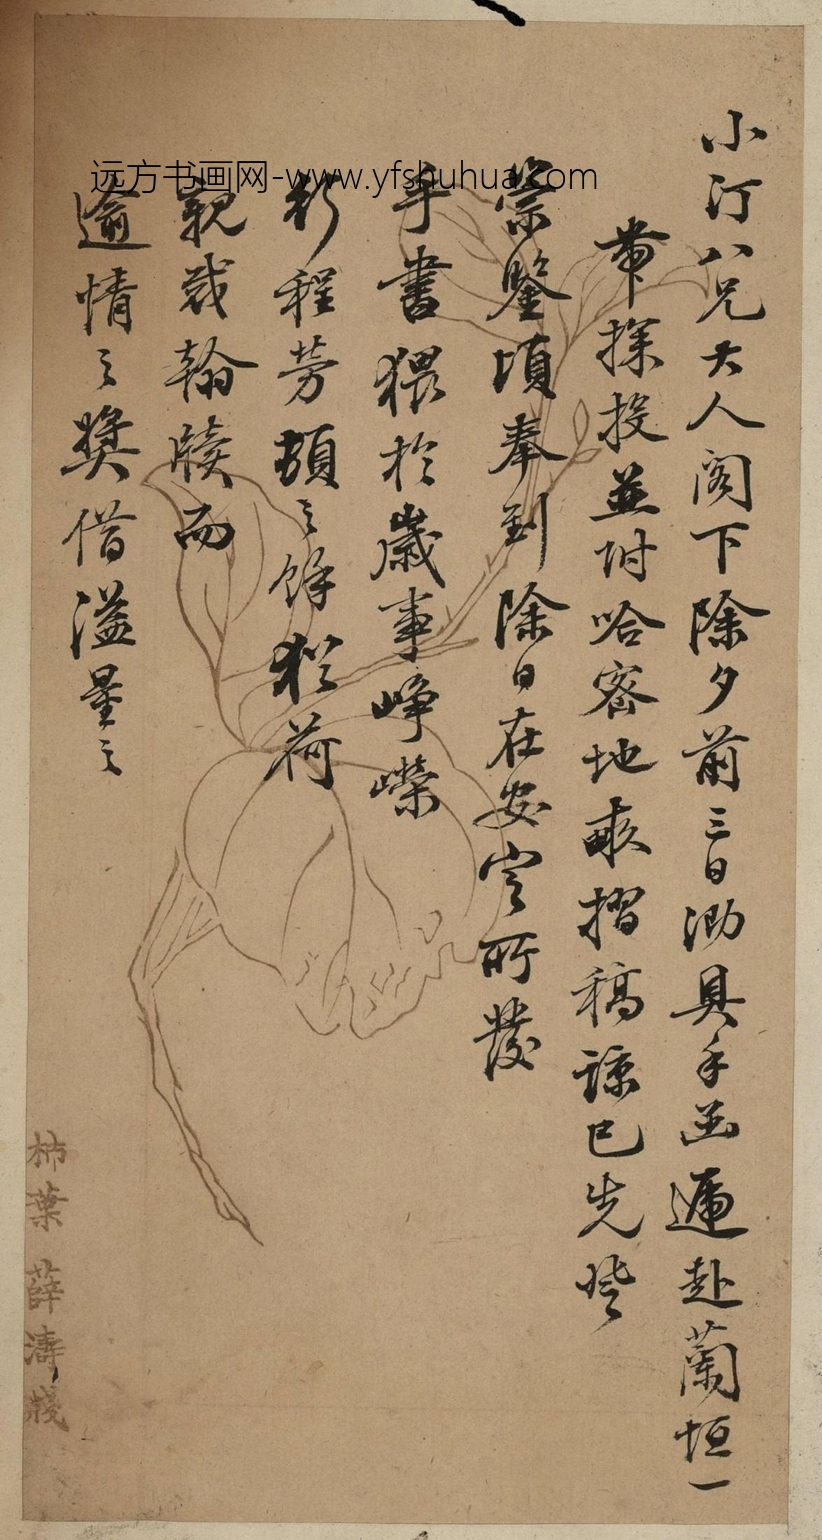 远方书画网-www.yfshuhua.com
小汀八兄大人阁下除夕前三日泐具手函遞赴蘭垣一
帶探投並附哈密地畝摺稿諒已先塵
崇鑒頃奉到除日在安定所發
手書猥於歲事崢嶸
行程勞頓之餘猶荷
親裁翰牘而
逾情之獎借溢量之
柿葉薛濤牋